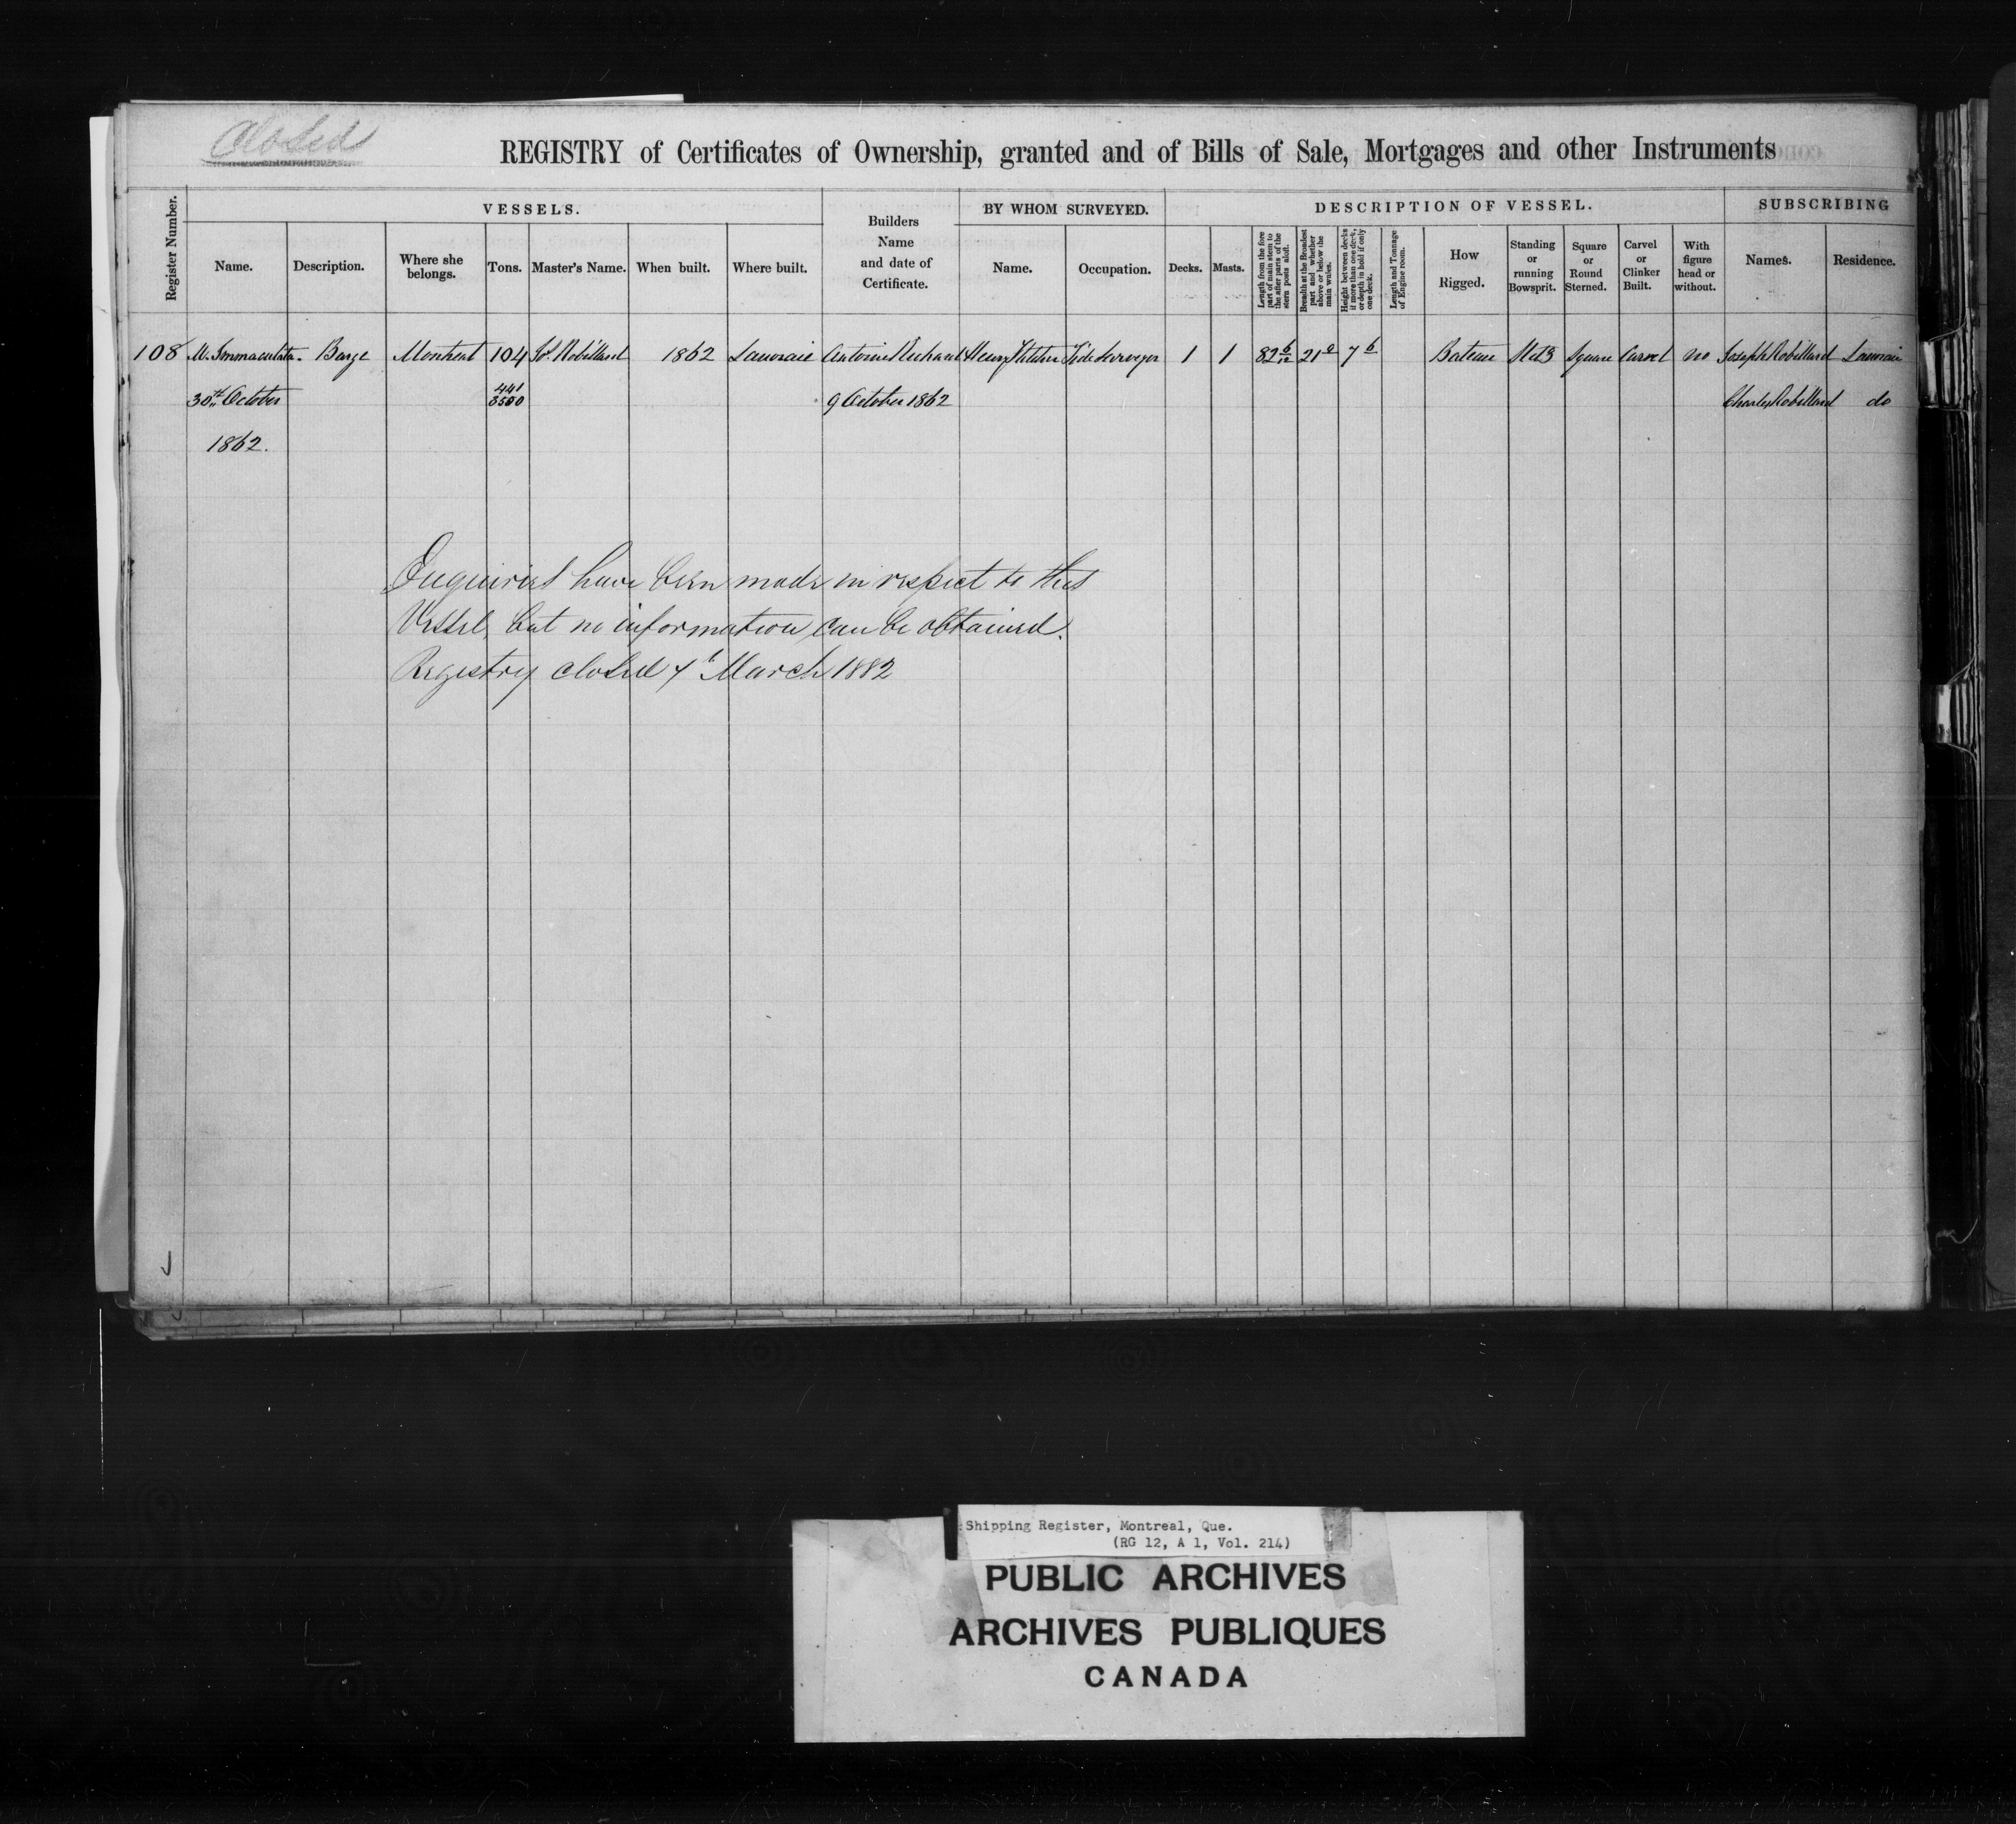 Closed
REGISTRY of Certificates of Ownership, granted and of Bills of Sale, Mortgages and other Instruments
Register Number.
VESSELS.
Name.
Description.
Where she belongs.
Tons.
Master's Name.
When built.
Where built.
Builders Name and date of Certificate.
BY WHOM SURVEYED.
Name.
Occupation.
DESCRIPTION OF VESSEL.
Decks.
Masts.
Length from the fore part of main stem to the after parts of the stern posts aloft.
Breadth at the Broadest part and whether above or below the main wales.
Height between decks if more than one deck, or depth in hold if only one deck.
Length and Tonnage of Engine room.
How Rigged.
Standing or running Bowsprit.
Square or Round Sterned.
Carvel or Clinker Built.
With figure head or without.
SUBSCRIBING
Names.
Residence.
108 M. Immaculata Barge Montreal 104 Jos. Robillard 1862 Lanoraie Antoine Henry Tide Surveyor 1 1 82 6/12 21 0 7 6 Bateau Square Carvel no Joseph Robillard Lanoraie
30th October 441/3500 9 October 1862 Charles Robillard do
1862.
Enquiries have been made in respect to this
Vessel, but no information can be obtained.
Registry closed 7th March 1882
Shipping Register, Montreal, Que.
(RG 12, A 1, Vol. 214)
PUBLIC ARCHIVES
ARCHIVES PUBLIQUES
CANADA